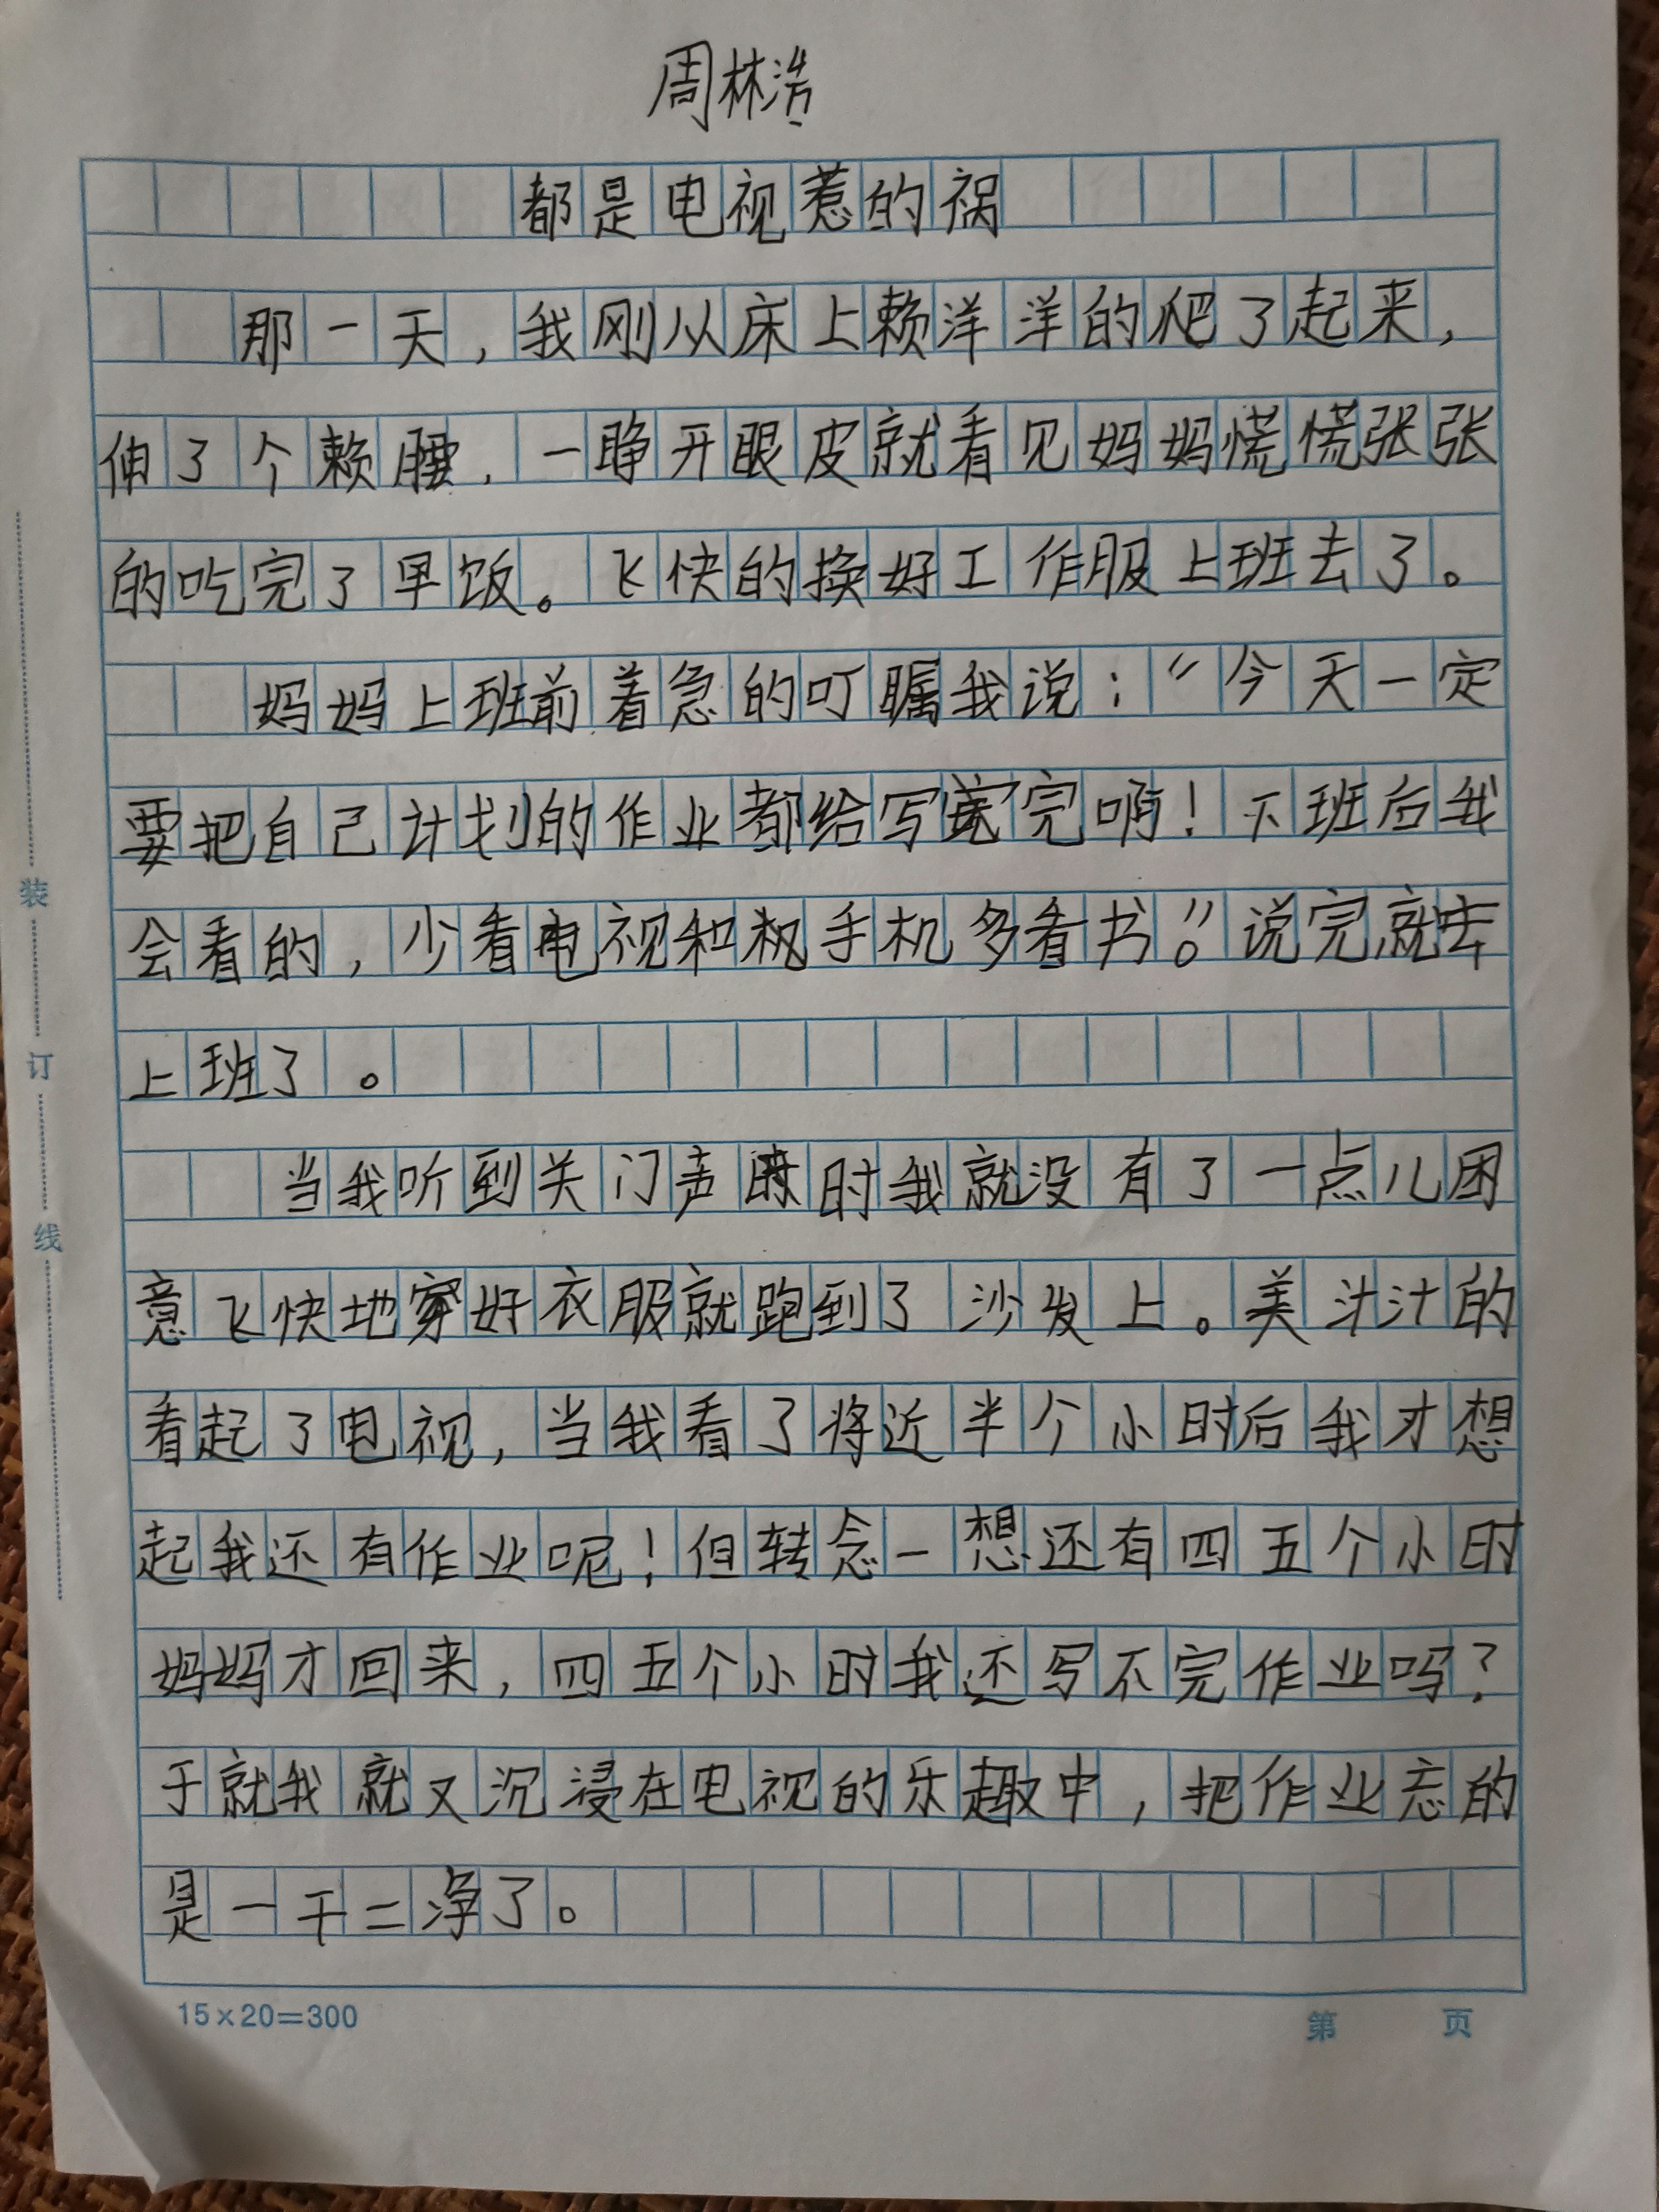 周林浩
都是电视惹的祸
那一天，我刚从床上赖洋洋的爬了起来，
伸了个赖腰，一睁开眼皮就看见妈妈慌慌张张
的吃完了早饭。飞快的换好工作服上班去了。
妈妈上班前着急的叮瞩我说：“今天一定
要把自己计划的作业都给写完啊！下班后我
会看的，少看电视和手机多看书。”说完就去
上班了。
当我听到关门声时我就没有了一点儿困
意飞快地穿好衣服就跑到了沙发上。美汁汁的
看起了电视，当我看了将近半个小时后我才想
起我还有作业呢！但转念一想还有四五个小时
妈妈才回来，四五个小时我还写不完作业吗？
于就我就又沉浸在电视的乐趣中，把作业忘的
是一干二净了。
装
订
线
15×20=300
第 页